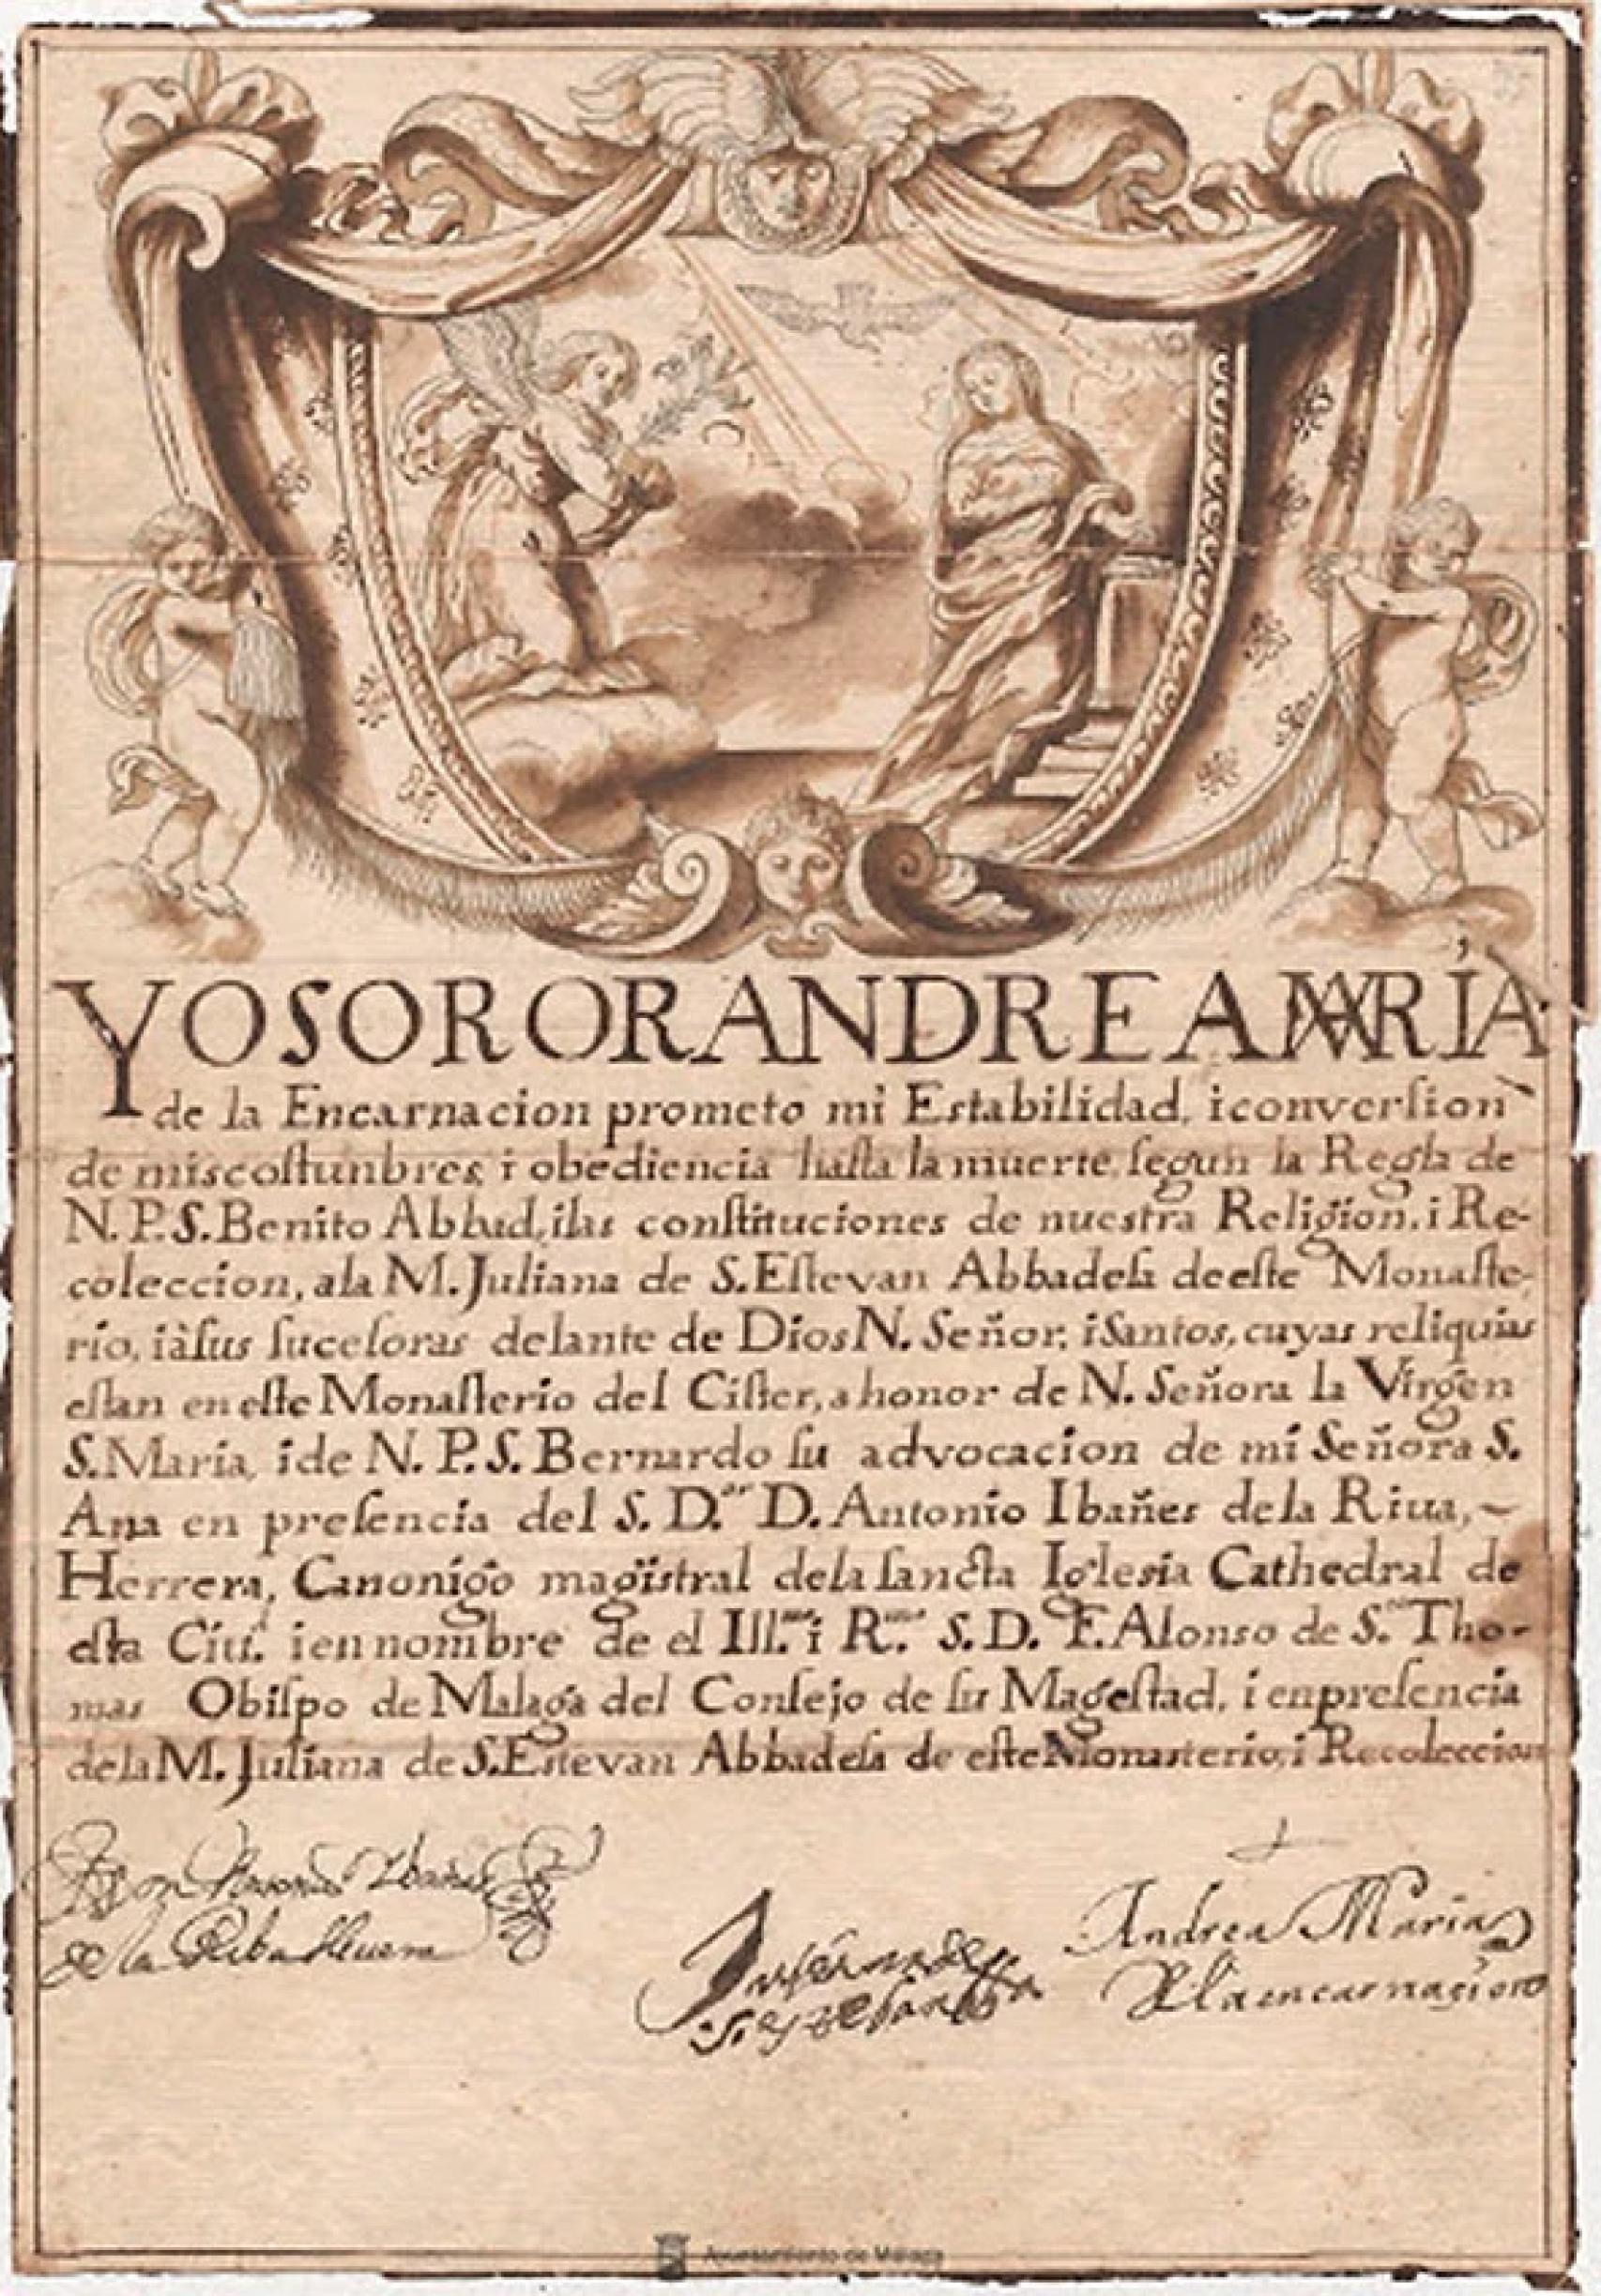 YO SOROR ANDREA MARÍA
de la Encarnacion prometo mi Estabilidad, i conversion
de mis costunbres i obediencia hasta la muerte segun la Regla de
N. P. S. Benito Abbad, i las constituciones de nuestra Religion, i Re-
coleccion, a la M. Juliana de S. Estevan Abbadesa de este Monaste-
rio, i à sus sucesoras delante de Dios N. Señor, i Santos, cuyas reliquias
estan en este Monasterio del Cister, a honor de N. Señora la Virgen
S. Maria, i de N. P. S. Bernardo su advocacion de mi Señora S.
Ana en presencia del S. D.or D. Antonio Ibañes de la Riua, ~
Herrera, Canonigo magistral de la sancta Iglesia Cathedral de
esta Ciu.d i en nombre de el Ill.mo i R.mo S. D. F. Alonso de S.to Tho-
mas Obispo de Malaga del Consejo de su Magestad, i en presencia
de la M. Juliana de S. Estevan Abbadesa de este Monasterio, i Recoleccion
Don Antonio Ibañez
de la Riba Herrera
Andrea Maria
de la encarnaçion
Ayuntamiento de Málaga